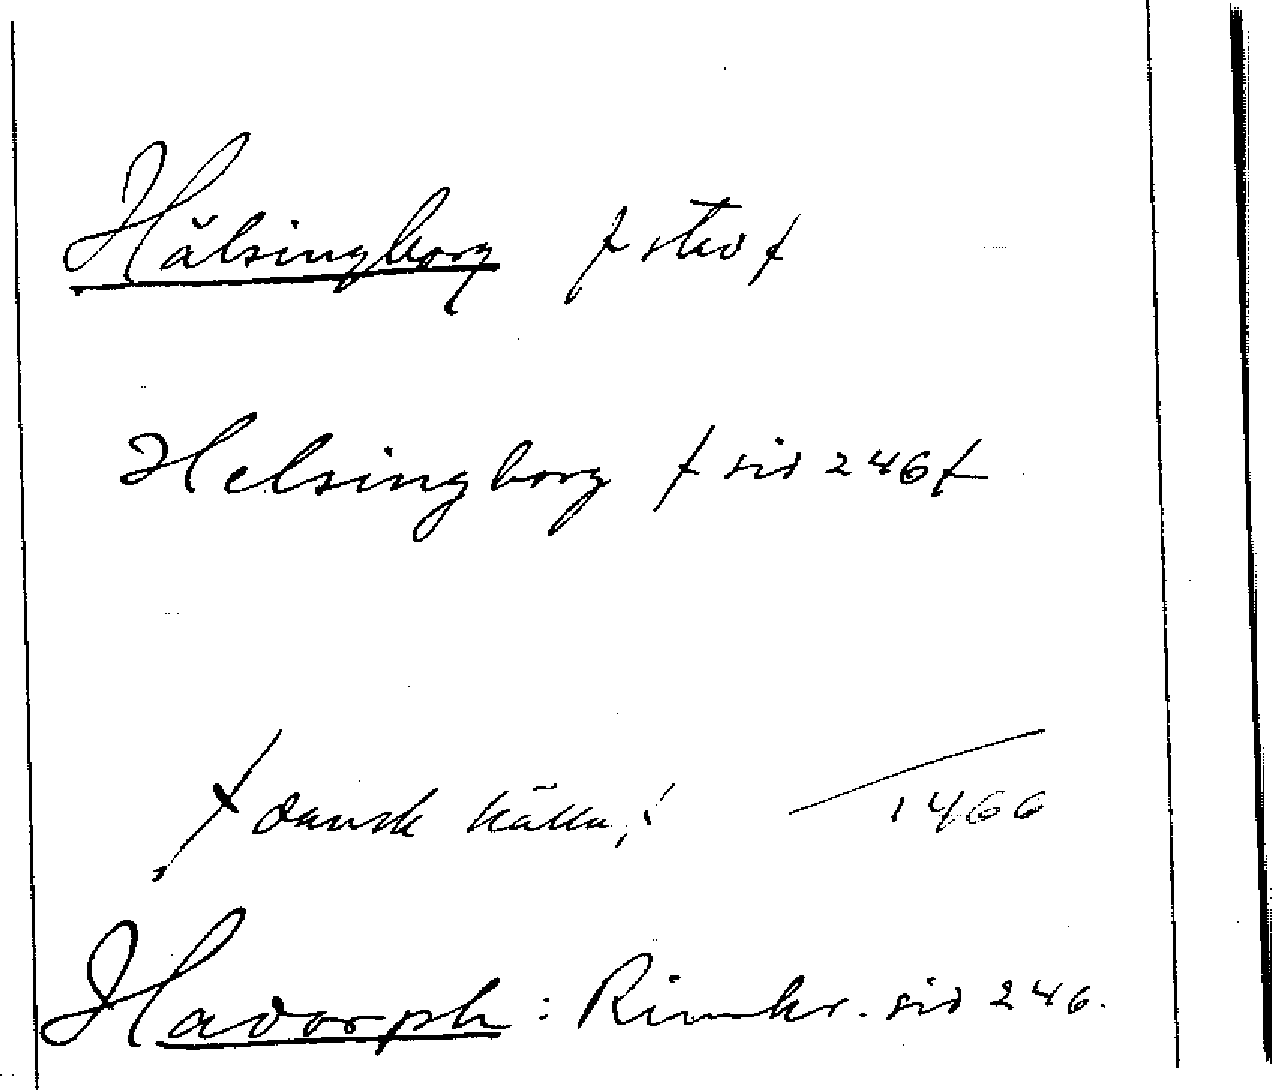 Hälsingborg / stad /
Helsingborg / sid 246 /
/ dansk källa / 1466
Hadorph: Rimkr. sid 246.